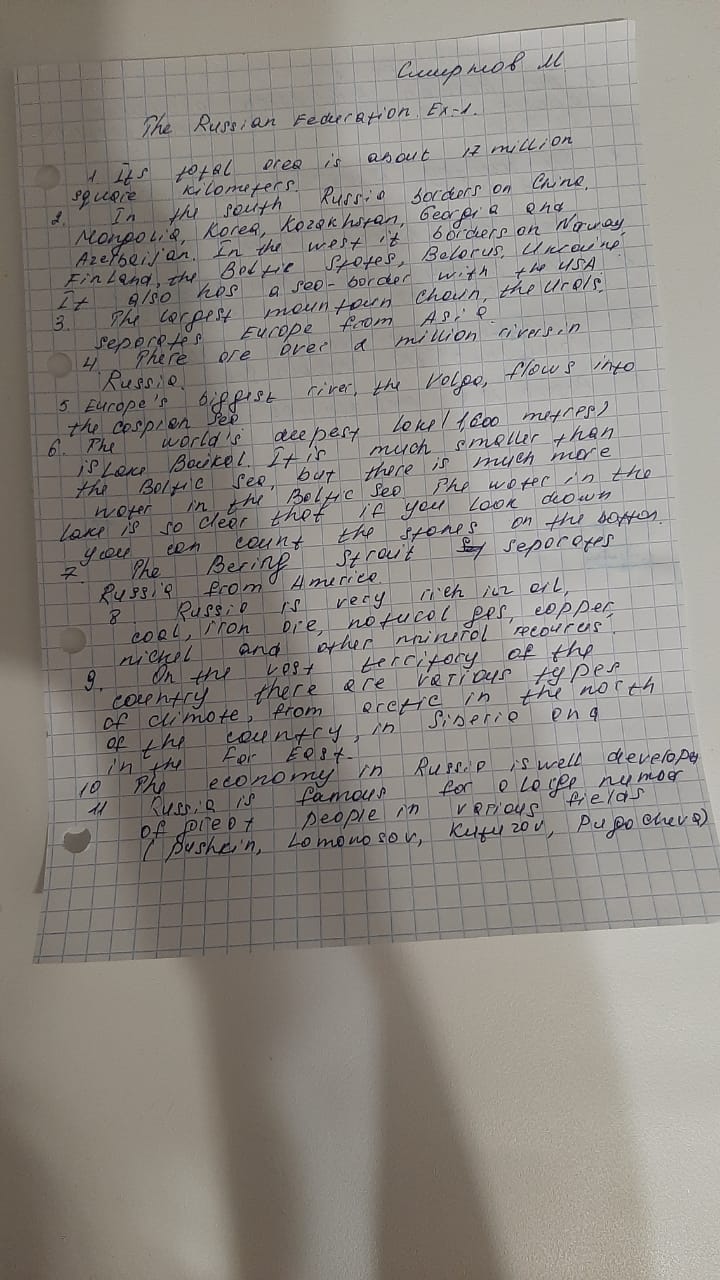 Смиртов М
The Russian Federation. Ex-1.
1. Its total area is about 17 million
square kilometers.
2. In the south Russia borders on China,
Mongolia, Korea, Kazakhstan, Georgia and
Azerbaijan. In the west it borders on Norway,
Finland, the Baltic States, Belarus, Ukraine.
It also has a sea-border with the USA.
3. The largest mountain chain, the Urals,
separates Europe from Asia.
4. There are over a million rivers in
Russia.
5 Europe's biggest river, the Volga, flows into
the Caspian Sea
6. The world's deepest lake (1,600 metres)
is Lake Baikal. It is much smaller than
the Baltic Sea, but there is much more
water in the Baltic Sea The water in the
lake is so clear that if you look down
you can count the stones on the botton.
7. The Bering Strait separates
Russia from America.
8. Russia is very rich in oil,
coal, iron ore, natural gas, copper,
nickel and other mineral recources.
9. On the vast territory of the
country there are various types
of climate, from arctic in the north
of the country, in Siberia and
in the Far East.
10 The economy in Russia is well developy
11 Russia is famous for a large numbor
of great people in various fields
(Pushkin, Lomonosov, Kutuzov, Pugacheva)